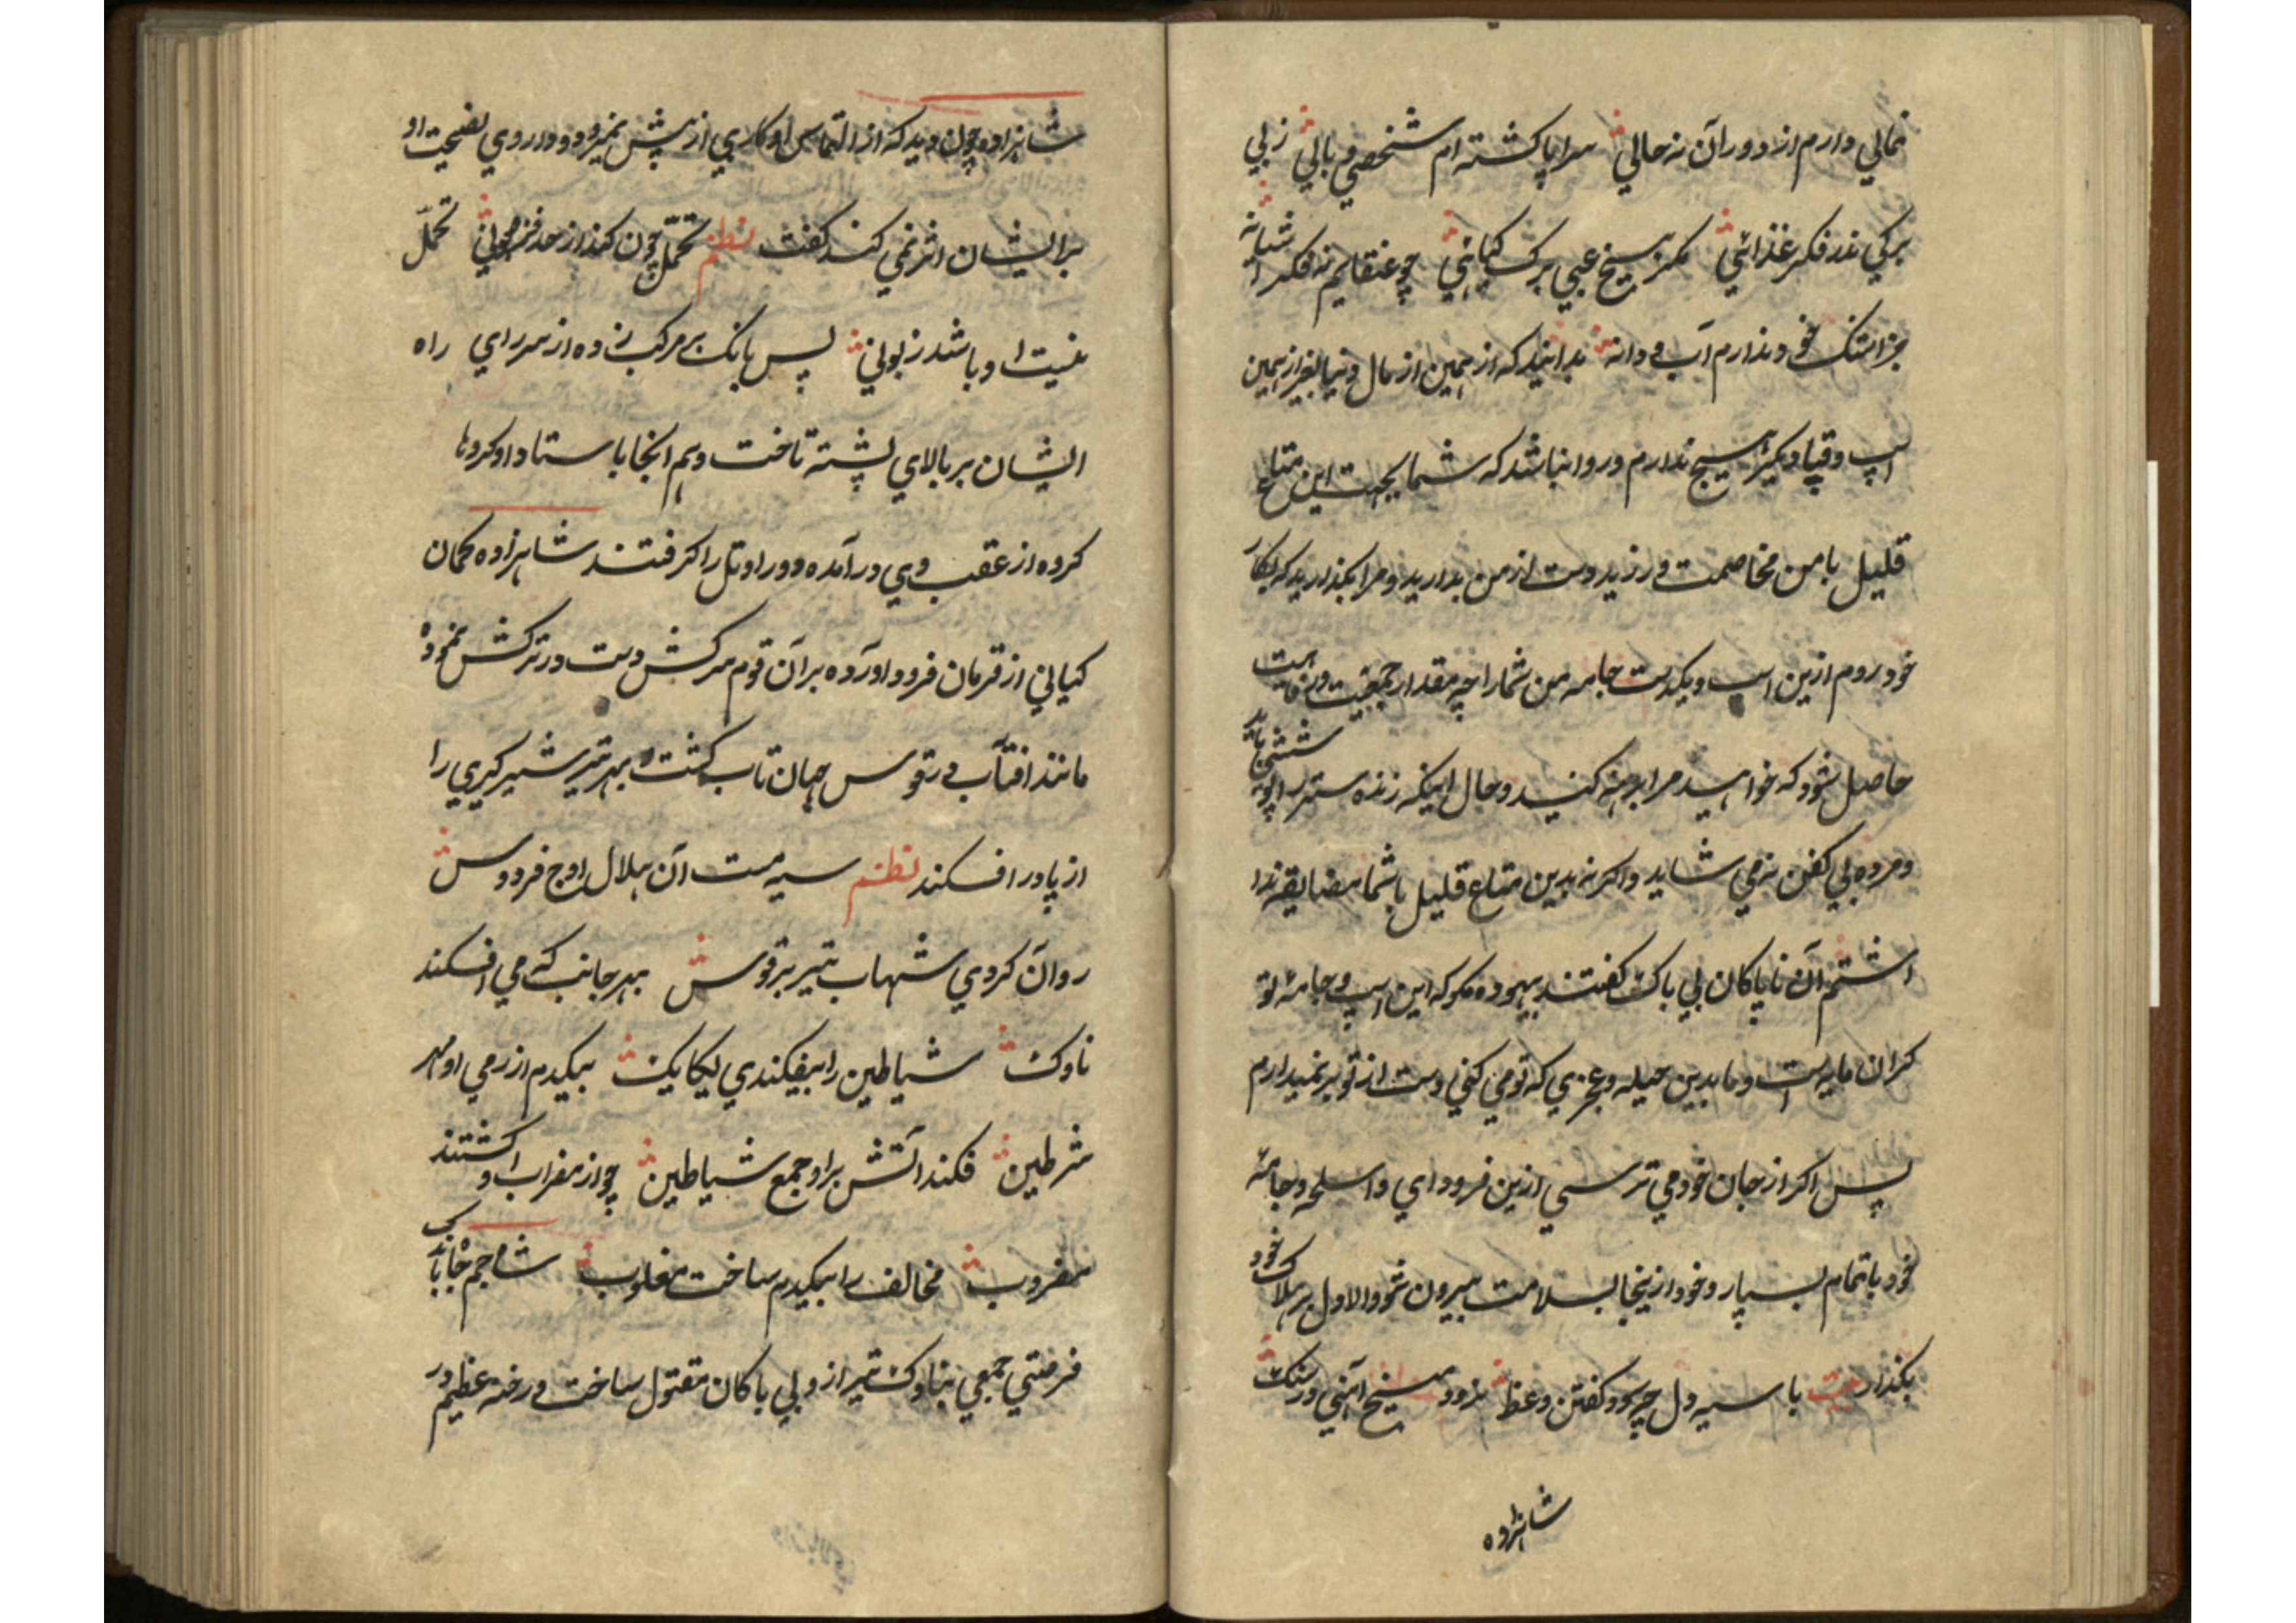 نمالي دارم از دوران نه حالي سراپا کشته ام شخصي و بالي ز بي
برکي ندر فکر غذائي مکر سيخ عبي برک کيائي چو عنقايم نه فکر اشيانه
جز اشک خود ندارم آب و دانه بدانيد که از همين از مال دنيا بغير ازين
اسپ و قبا ديکر هيچ ندارم و روا نباشد که شما بجهت اين متاع
قليل با من مخاصمت ورزيد دست از من بداريد و مرا بکذاريد که بکار
خود روم ازين اسپ و يکدست جامه من شما را چه مقدار جمعيت و رفاهيت
حاصل شود که خواهيد مرا برهنه کنيد و حال اينکه زنده ستر پوشش بايد
و مرده بي کفن نمي شايد و اکر نه بدين متاع قليل با شما مضايقه ندا
اشتم آن ناپاکان بي باک کفتند بيهوده مکو که اين اسپ و جامه تو
کران مايه است و ما بدين حيله و عجزي که تو مي کني دست از تو بر نميدارم
پس اکر از جان خود مي ترسي ازين فرود اي و اسلحه و جامه
خود با تمام بسپار و خود ازينجا بسلامت بيرون شو والا دل بر هلاک خود
بکذار بيت با سيه دل چه سود کفتن وعظ نرود ميخ آهني در سنک
شاهزاده
شاهزاده چون ديد که از التماس او کاري از پيش نميرود و داروي نصيحت او
بر ايشان اثر نمي کند کفت نظم تحمل چون کند از حد فزوني تحمل
نيست او باشد زبوني پس بانک بر مرکب زده از سر راي راه
ايشان بر بالاي پشته تاخت و هم انجا باستاد و کردها
کروه از عقب وي در آمده دور او تل را کرفتند شاهزاده کمان
کياني از قربان فرود اورده بر آن قوم سرکش دست در ترکش نموده
مانند افتاب در قوس جهان تاب کشت و بهر تير شير کيري را
از پا در افکند نظم سيه مست آن هلال اوج فردوس
روان کردي شهاب تير بر قوس بهر جانب که مي افکند
ناوک شياطين را بيفکندي يکايک بيکدم از رمي او مهر
شرطين فکند آتش بر او جمع شياطين چو از مضراب او کشتند
مضروب مخالف را بيکدم ساخت مغلوب شاه جم جاه باندک
فرصتي جمعي بناوک تير از ان بي باکان مقتول ساخت و رخنه عظيم در